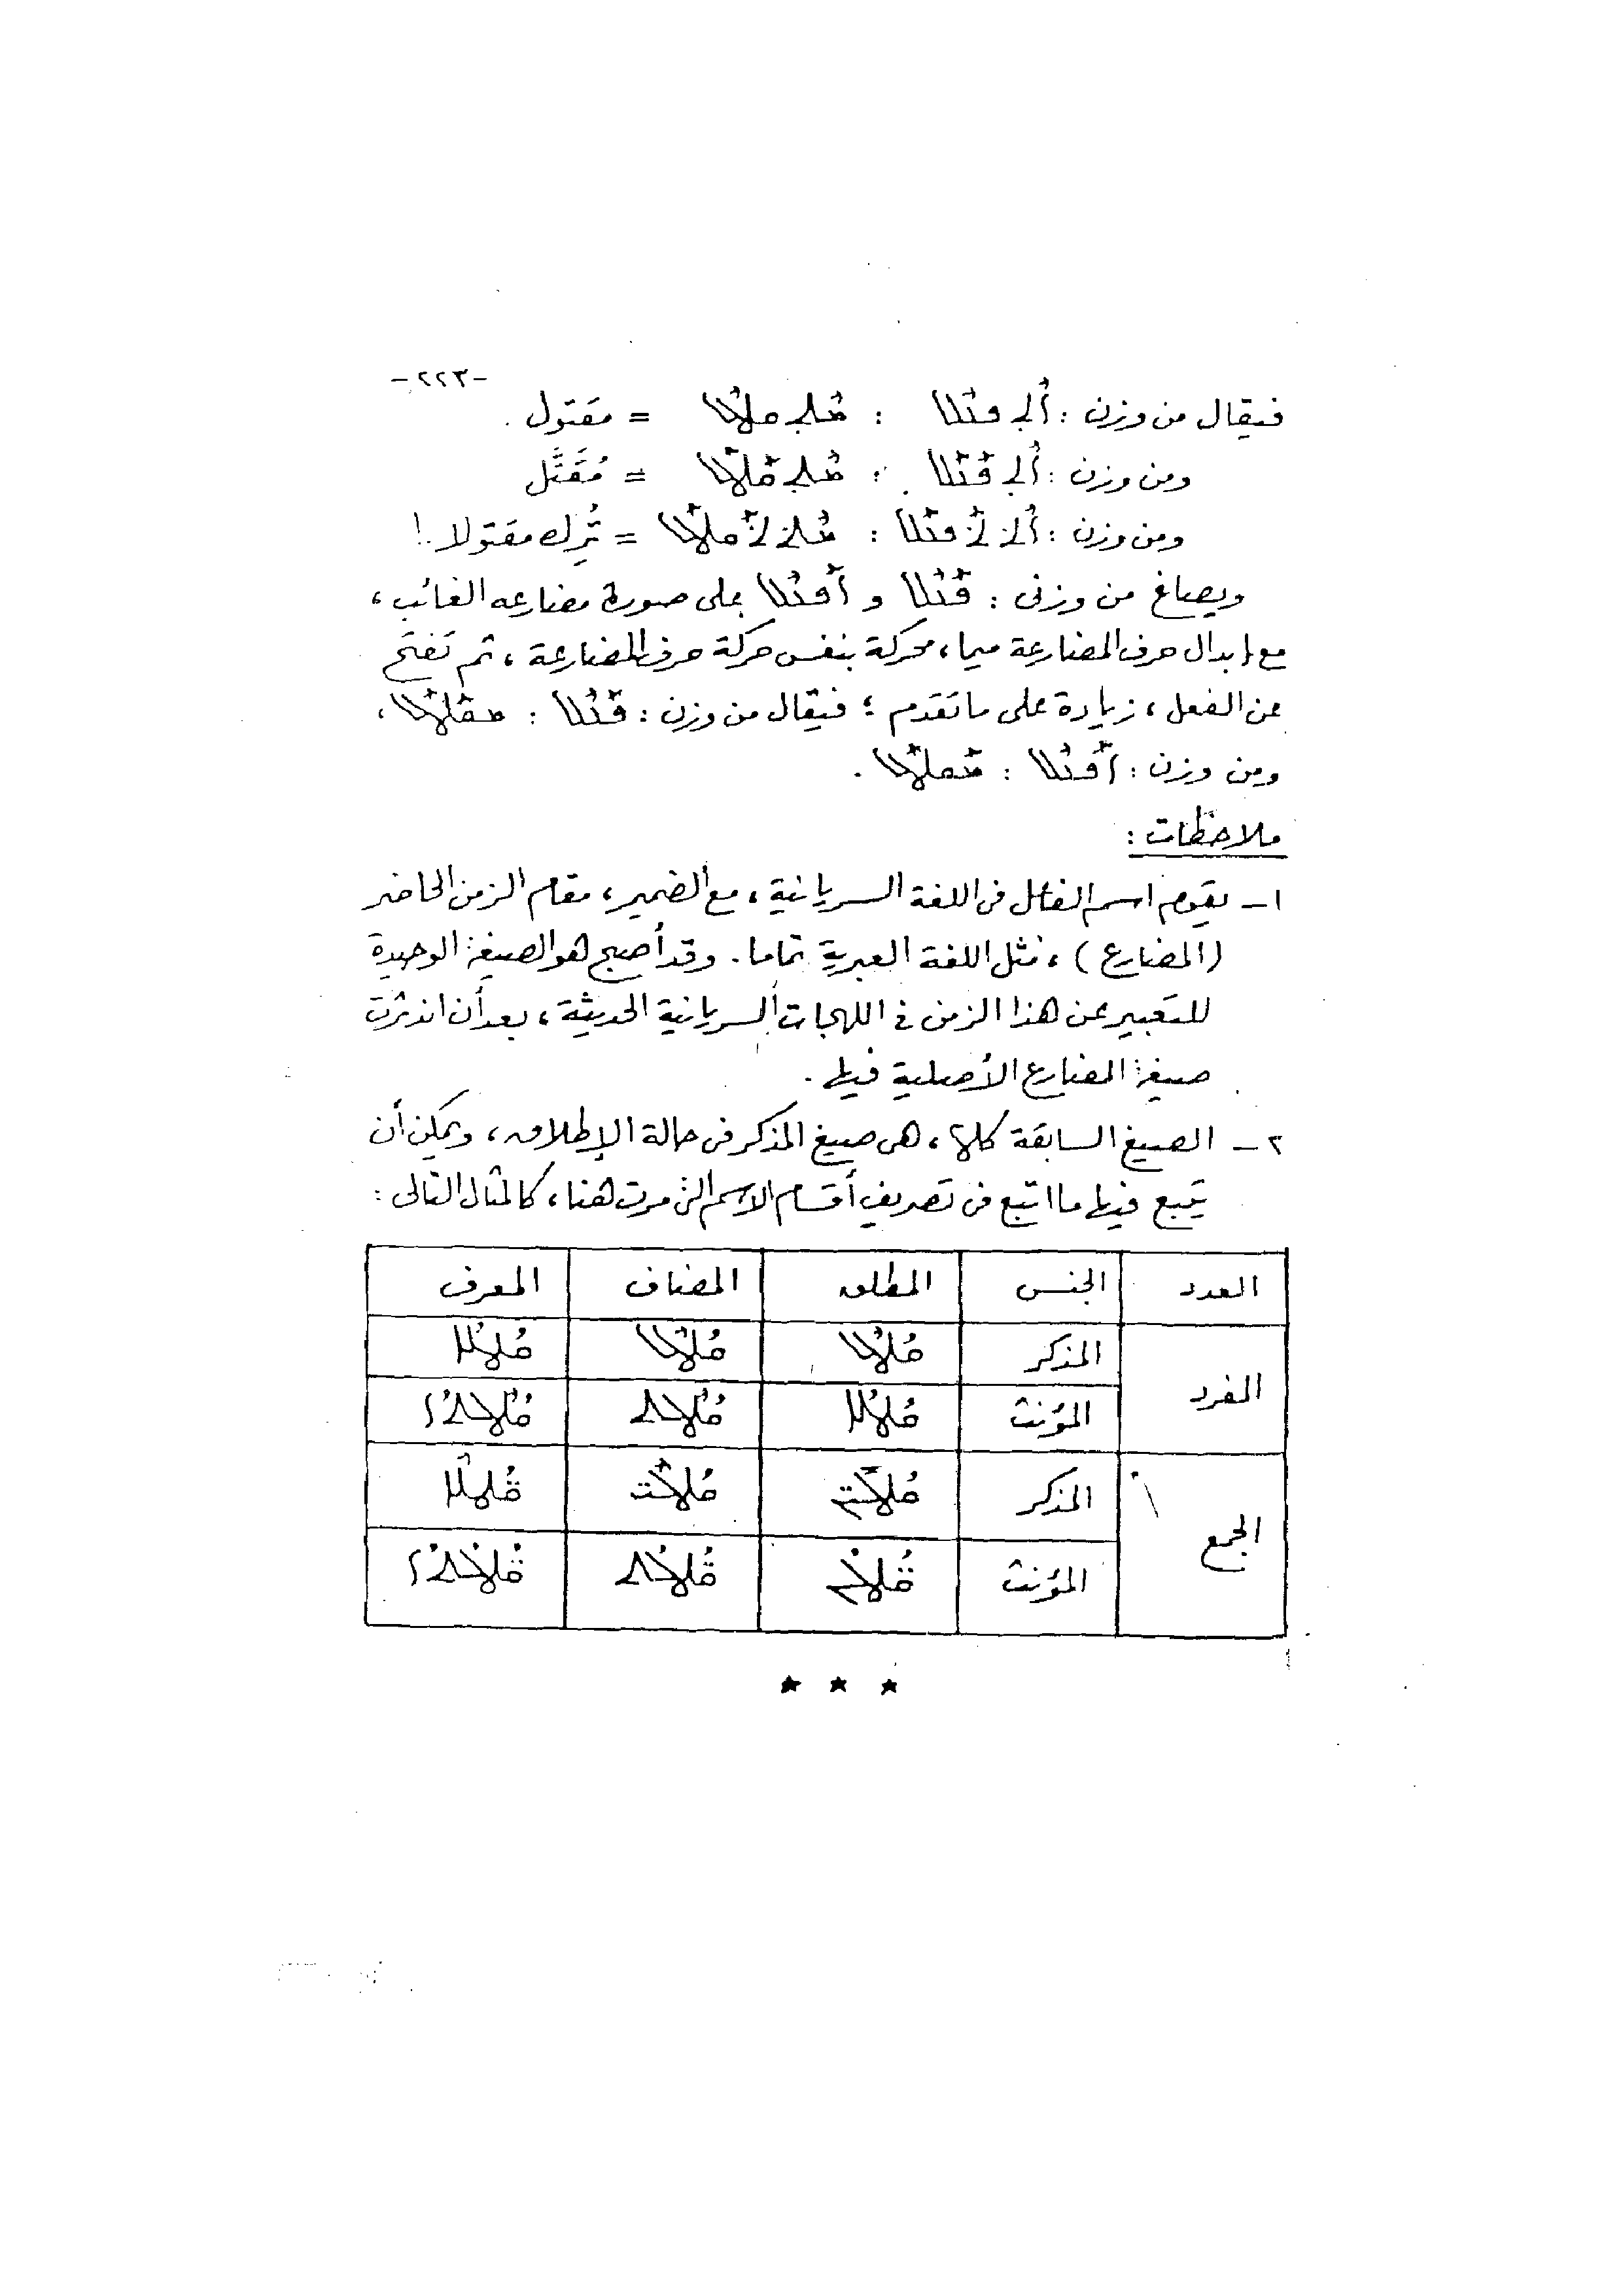 -٢٢٣-
فيقال من وزن : ܐܶܬܦܥܶܠ : ܡܶܬܩܛܶܠ = مقتول .
ومن وزن : ܐܶܬܦܰܥܰܠ : ܡܶܬܩܰܛܰܠ = مُقَتَّل
ومن وزن : ܐܶܬܬܰܦܥܰܠ : ܡܶܬܬܰܩܛܰܠ = تُرِك مقتولا !
ويصاغ من وزنى : ܦܰܥܶܠ و ܐܰܦܥܶܠ على صورة مضارعه الغائب ،
مع إبدال حرف المضارعة ميما ، محركة بنفس حركة حرف المضارعة ، ثم تفتح
عن الفعل ، زيادة على ما تقدم ؛ فيقال من وزن : ܦܰܥܶܠ : ܡܩܰܛܰܠ ،
ومن وزن : ܐܰܦܥܶܠ : ܡܰܩܛܰܠ .
ملاحظات :
١ـ يقوم اسم الفاعل فى اللغة السريانية ، مع الضمير ، مقام الزمن الحاضر
(المضارع) ، مثل اللغة العبرية تماما . وقد أصبح هو الصيغة الوحيدة
للتعبير عن هذا الزمن فى اللهجات السريانية الحديثة ، بعد أن اندثرت
صيغة المضارع الأصلية فيها .
٢ـ الصيغ السابقة كلها ، هى صيغ المذكر فى حالة الإطلاق ، ويمكن أن
يتبع فيها ما اتبع فى تصريف أقسام الاسم التى مرت هنا ، كالمثال التالى :
العدد الجنس المطلق المضاف المعرف
المفرد المذكر ܩܳܛܶܠ ܩܳܛܶܠ ܩܳܛܠܳܐ
المؤنث ܩܳܛܠܳܐ ܩܳܛܠܰܬ ܩܳܛܶܠܬܳܐ
الجمع المذكر ܩܳܛܠܺܝܢ ܩܳܛܠܰܝ ܩܳܛܠܶܐ
المؤنث ܩܳܛ̈ܠܳܢ ܩܳܛ̈ܠܳܬ ܩܳܛ̈ܠܳܬܳܐ
★ ★ ★